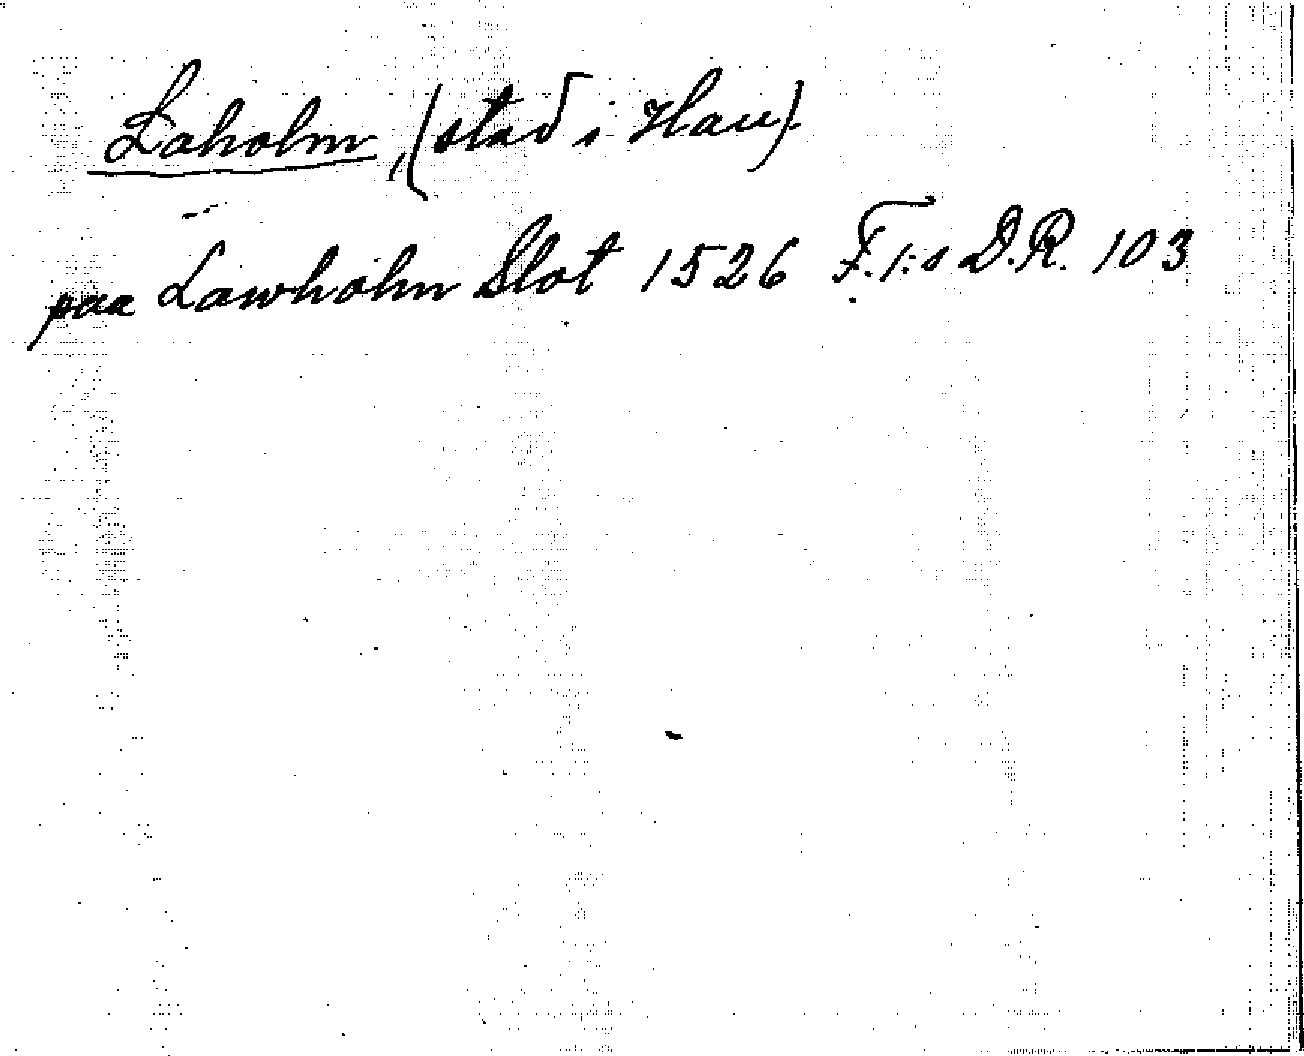 Laholm, (stad i Hall)
paa Lawholm Slot 1526 F. 1:s D.R. 103